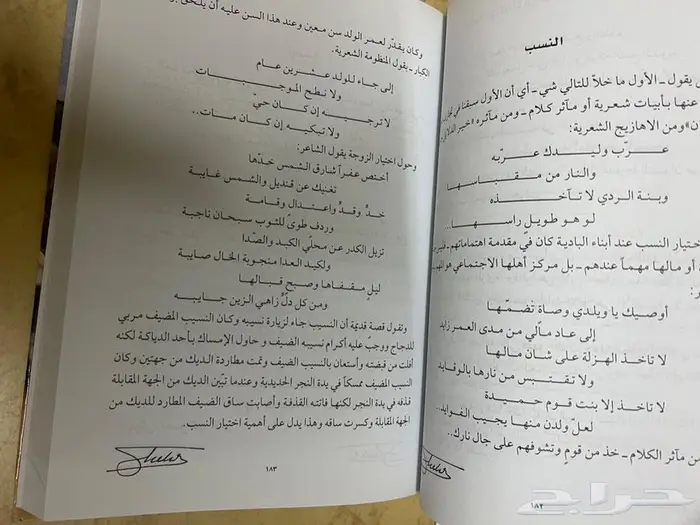 النسب
يقول ـ الأول ما خلاّ للتالي شي ـ أي أن الأول سبقنا في
عنها بأبيات شعرية أو مآثر كلام ـ ومن مآثره «خير
ومن الاهازيج الشعرية:
عرّب وليدك عربّه
والنار من مقباسها
وبنة الردي لا تآخذه
لو هو طويلٍ راسها..
ختيار النسب عند أبناء البادية كان في مقدمة اهتماماتهم ـ
أو مالها مهماً عندهم ـ بل مركز أهلها الاجتماعي هو المهم
ر:
أوصيك يا ويلدي وصاة تضمّها
إلى عاد مالي من مدى العمر زايد
لا تاخذ الهزلة على شان مالها
ولا تقتبس من نارها بالوقايد
لا تاخذ إلا بنت قوم حميدة
لعلّ ولدن منها يجيب الفوايد..
من مآثر الكلام ـ خذ من قومٍ وتشوفهم على جال نارك..
١٨٢
وكان يقدّر لعمر الولد سن معين وعند هذا السن عليه أن يلحق
الكبار ـ يقول المنظومة الشعرية.
إلى جاء للولد عشرين عام
ولا نطح الموجبات
لا ترجيه إن كان حيّ
ولا تبكيه إن كان مات..
وحول اختيار الزوجة يقول الشاعر:
أختص عفراً شارق الشمس خدّها
تغنيك عن قنديل والشمس غايبة
خدٌ وقدٌ واعتدال وقامة
وردف طوىّ للثوب سيحان ناجية
نزيل الكدر عن محلي الكبد والصّدا
ولكبد العدا منجوبة الخال صايبة
ليلٍ مقفاها وصبح قبالها
ومن كل دلٌ زاهي الزين جايبه
وتقول قصة قديمة أن النسيب جاء لزيارة نسيبه وكان النسيب المضيف مربي
للدجاج ووجبّ عليه أكرام نسيبه الضيف و حاول الإمساك بأحد الدياكة لكنه
أفلت من قبضته وأستعان بالنسيب الضيف وتمت مطاردة الديك من جهتين وكان
النسيب المضيف ممسكاً في يدة النجر الحديدية وعندما تبّين الديك من الجهة المقابلة
قذفه في يدة النجر لكنها فاتته القذفة وأصابت ساق الضيف المطارد للديك من
الجهة المقابلة وكسرت ساقه وهذا يدل على أهمية اختيار النسب.
١٨٣
حراج